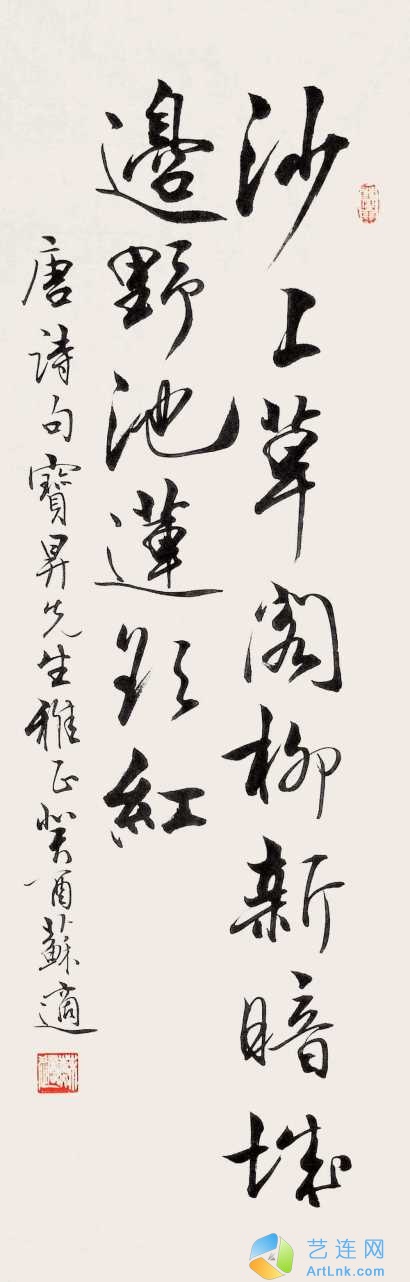 沙上草閣柳新暗城
邊野池蓮欲紅
唐詩句寶昇先生雅正癸酉蘇適
艺连网
ArtLnk.com